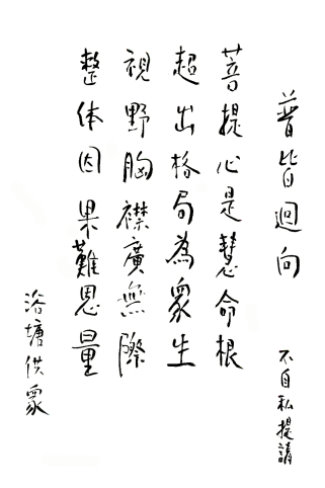 普皆迴向
不自私提
菩提心是慧命根
超出格局為衆生
視野胸襟廣無際
整体因果難思量
浴塘供衆